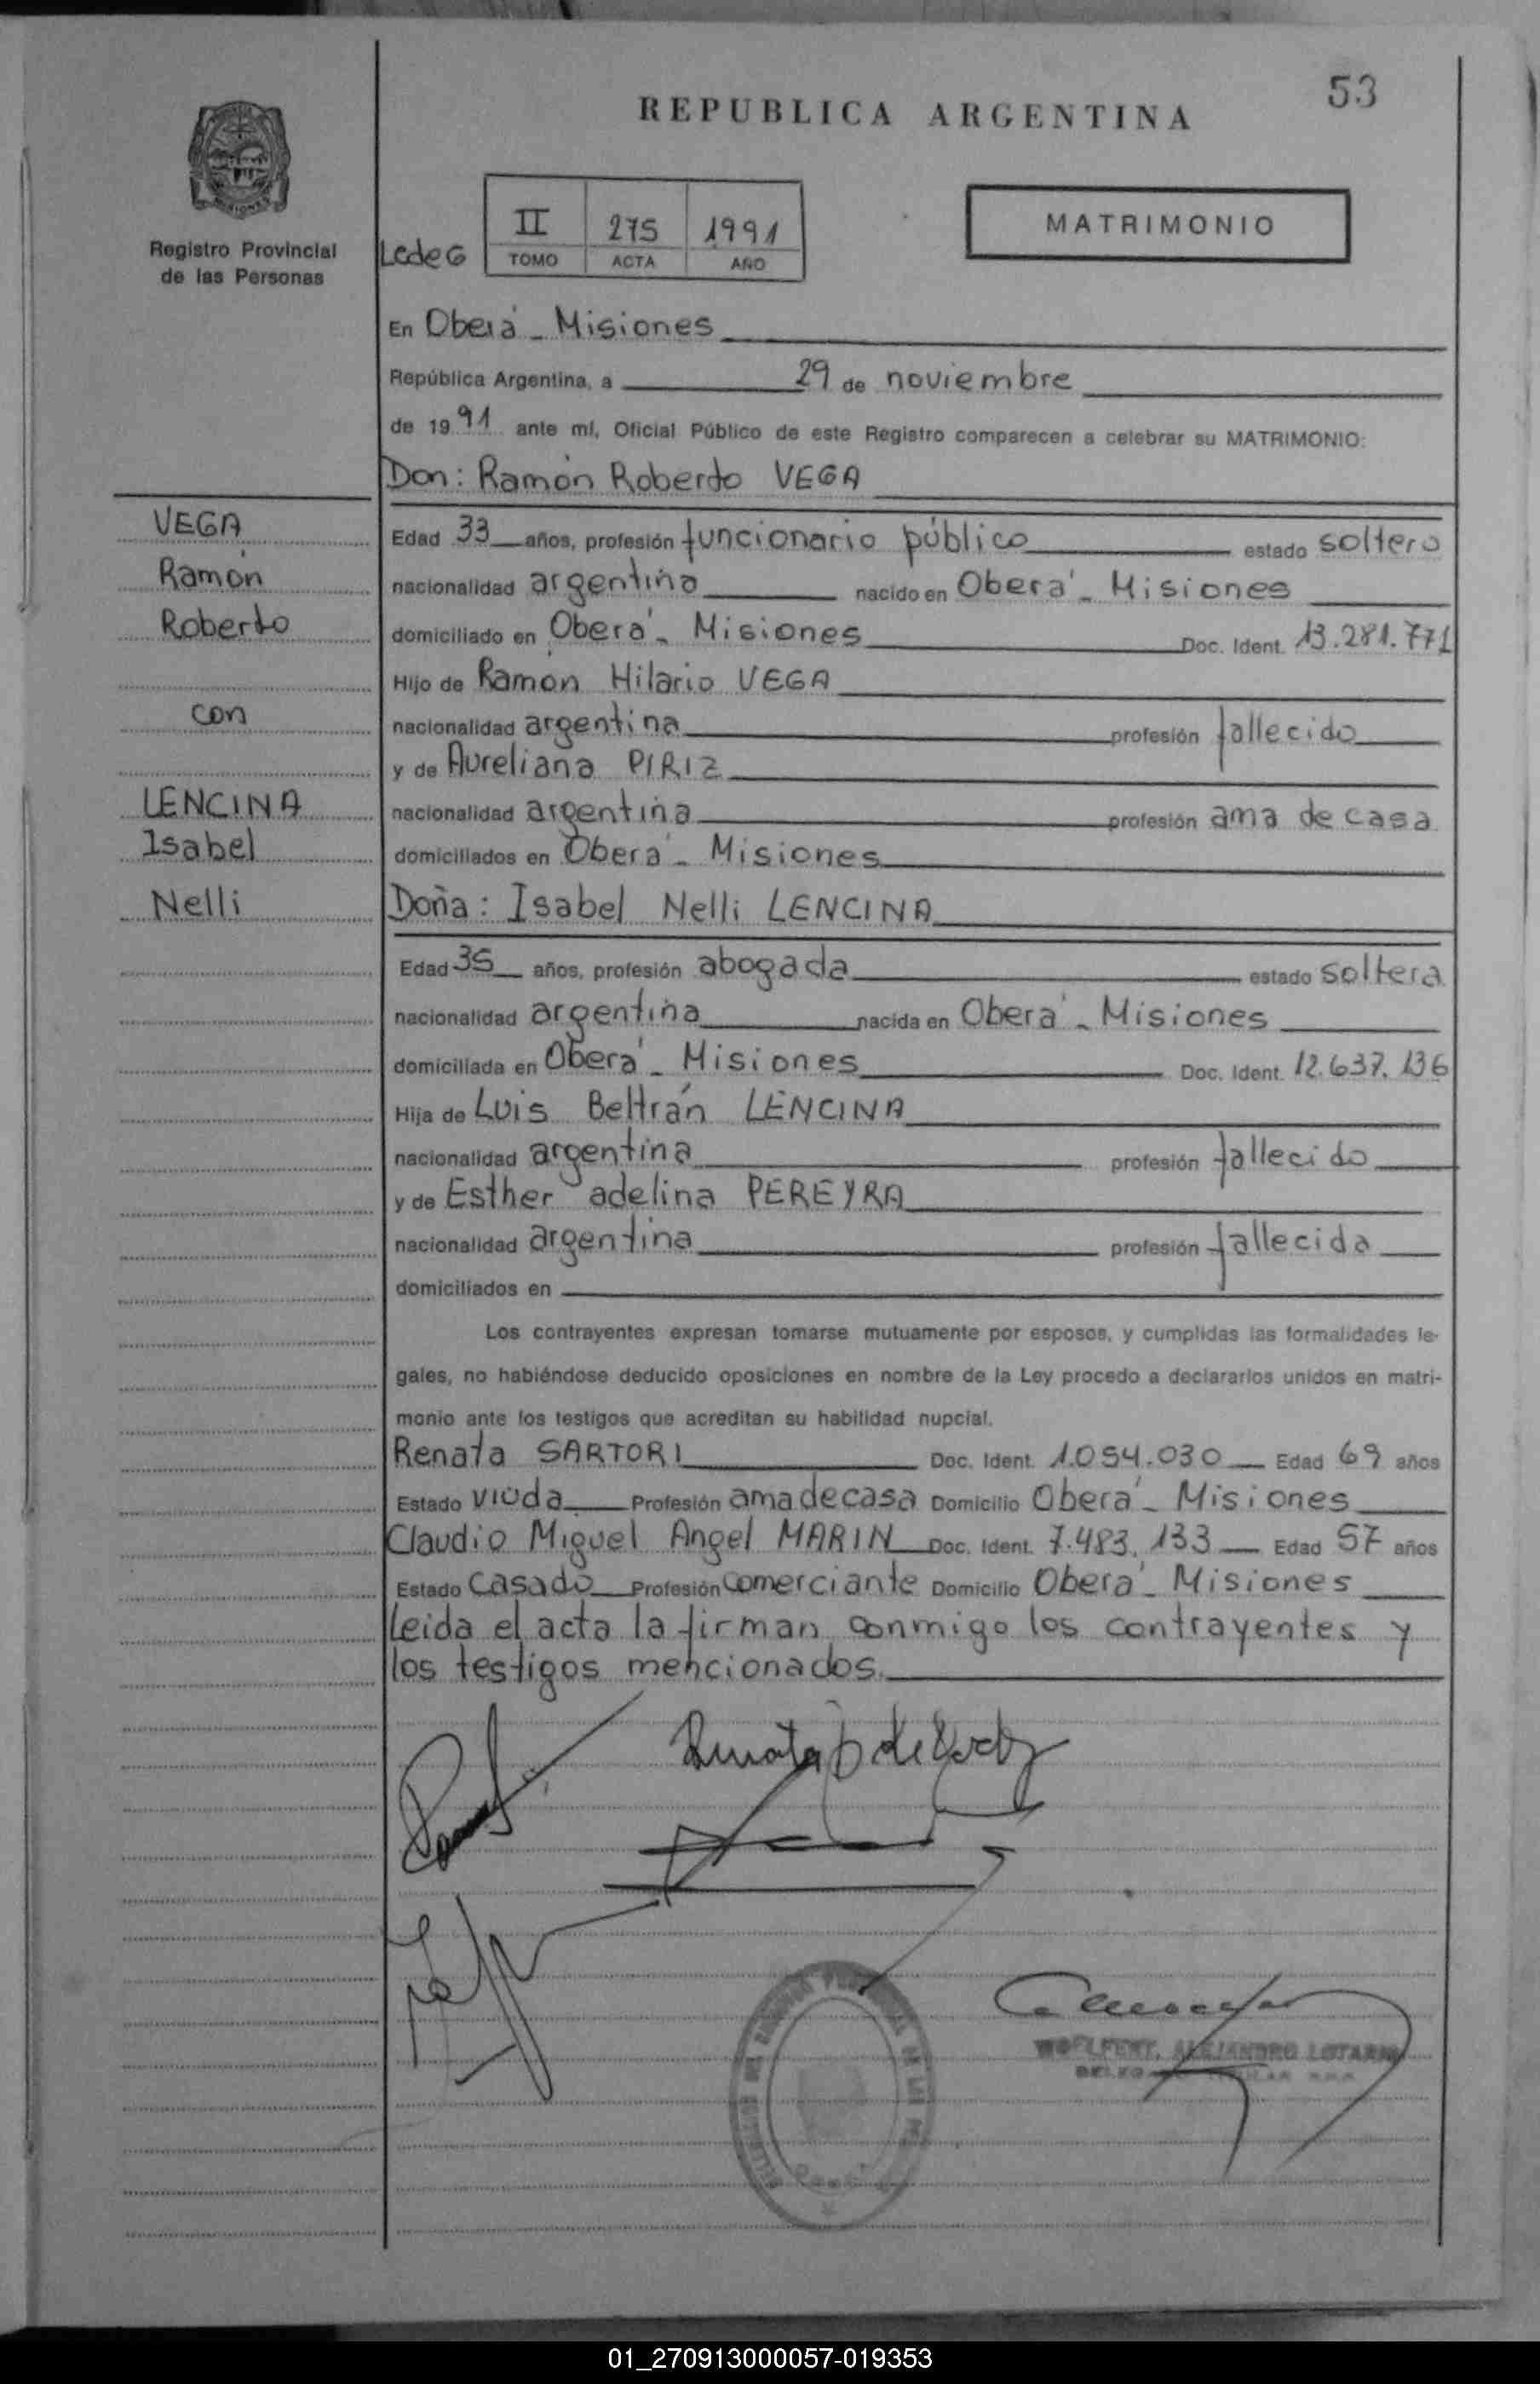 53
REPUBLICA ARGENTINA
MISIONES
Registro Provincial
de las Personas
LcdeG
II 275 1991
TOMO ACTA AÑO
MATRIMONIO
En Oberá - Misiones
República Argentina, a 29 de noviembre
de 1991 ante mí, Oficial Público de este Registro comparecen a celebrar su MATRIMONIO:
Don: Ramón Roberto VEGA
VEGA
Ramón
Roberto
con
LENCINA
Isabel
Nelli
Edad 33 años, profesión funcionario público estado soltero
nacionalidad argentina nacido en Oberá - Misiones
domiciliado en Oberá - Misiones Doc. Ident. 13.281.771
Hijo de Ramón Hilario VEGA
nacionalidad argentina profesión fallecido
y de Aureliana PIRIZ
nacionalidad argentina profesión ama de casa
domiciliados en Oberá - Misiones
Doña: Isabel Nelli LENCINA
Edad 35 años, profesión abogada estado soltera
nacionalidad argentina nacida en Oberá - Misiones
domiciliada en Oberá - Misiones Doc. Ident. 12.637.136
Hija de Luis Beltrán LENCINA
nacionalidad argentina profesión fallecido
y de Esther adelina PEREYRA
nacionalidad argentina profesión fallecida
domiciliados en
Los contrayentes expresan tomarse mutuamente por esposos, y cumplidas las formalidades le-
gales, no habiéndose deducido oposiciones en nombre de la Ley procedo a declararlos unidos en matri-
monio ante los testigos que acreditan su habilidad nupcial.
Renata SARTORI Doc. Ident. 1.054.030 Edad 69 años
Estado viuda Profesión ama de casa Domicilio Oberá - Misiones
Claudio Miguel Angel MARIN Doc. Ident. 7.483.133 Edad 57 años
Estado casado Profesión comerciante Domicilio Oberá - Misiones
Leida el acta la firman conmigo los contrayentes y
los testigos mencionados.
Renata
ALEJANDRO LOTARIO
01_270913000057-019353